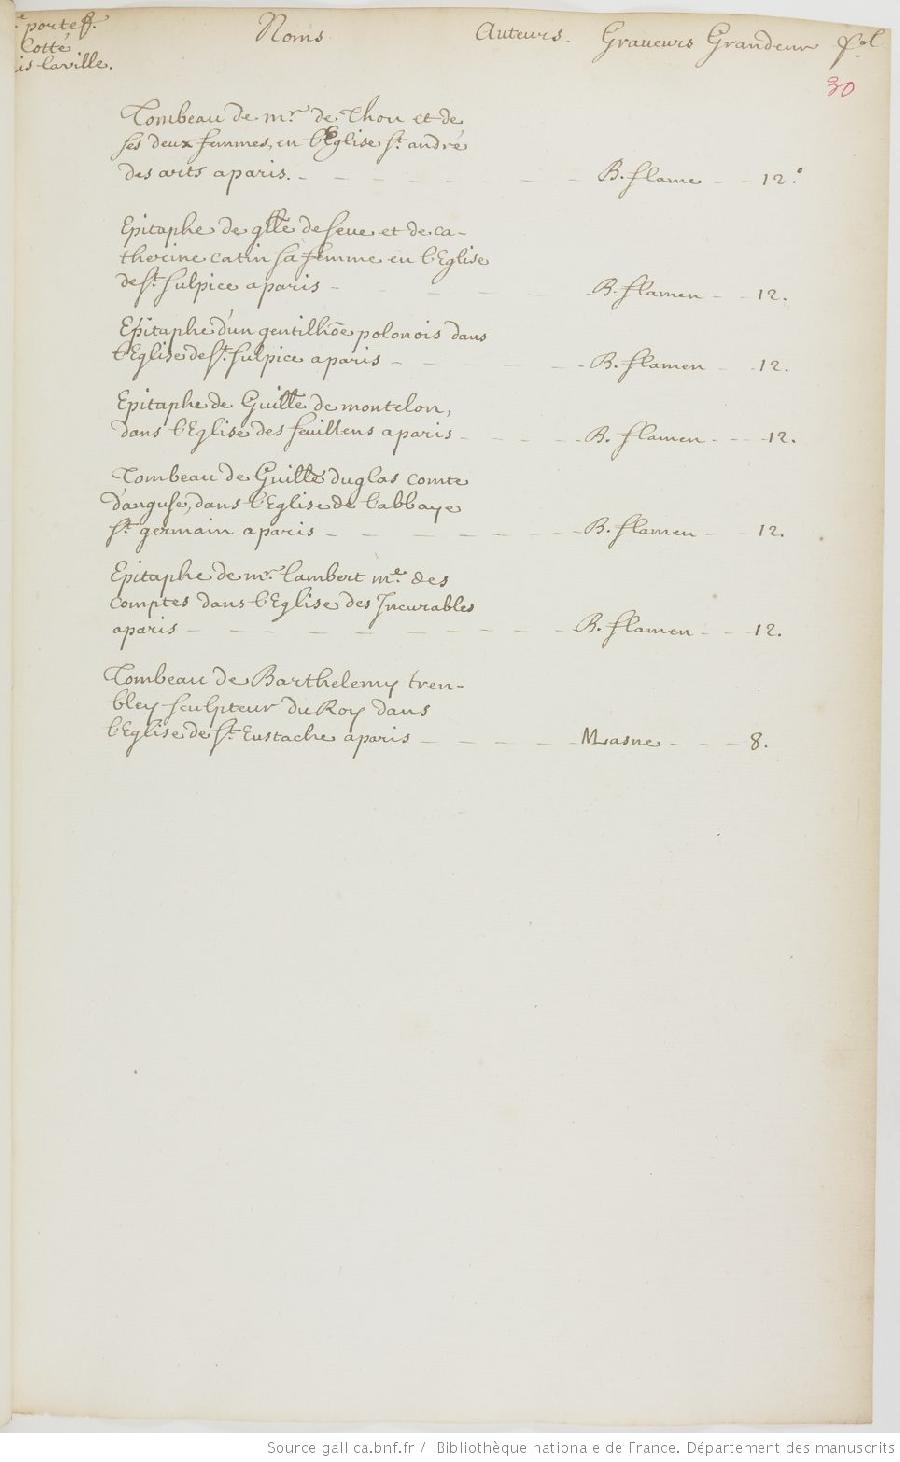 e porteff. Noms Auteurs. Graveurs Grandeur fol
Cotté
is-laville.
30
Tombeau de mr. de Thou et de
ses deux femmes, en l'Eglise St. andré
des arts a paris. B. flame 12.°
Epitaphe de glle de seve et de ca-
therine catin sa femme en l'Eglise
de St. sulpice a paris B. flamen 12.
Epitaphe d'un gentilhoe polonois dans
l'Eglise de St. sulpice a paris B. flamen 12.
Epitaphe de Guille de montelon,
dans l'Eglise des feuillens a paris B. flamen 12.
Tombeau de Guille duglas comte
d'anguse, dans l'Eglise de l'abbaye
St. germain a paris B. flamen 12.
Epitaphe de mr. lambert me. des
comptes dans l'Eglise des Incurables
a paris B. flamen 12.
Tombeau de Barthelemy tren-
bley sculpteur du Roy dans
l'Eglise de St. Eustache a paris Masne 8.
Source gallica.bnf.fr / Bibliothèque nationale de France. Département des manuscrits